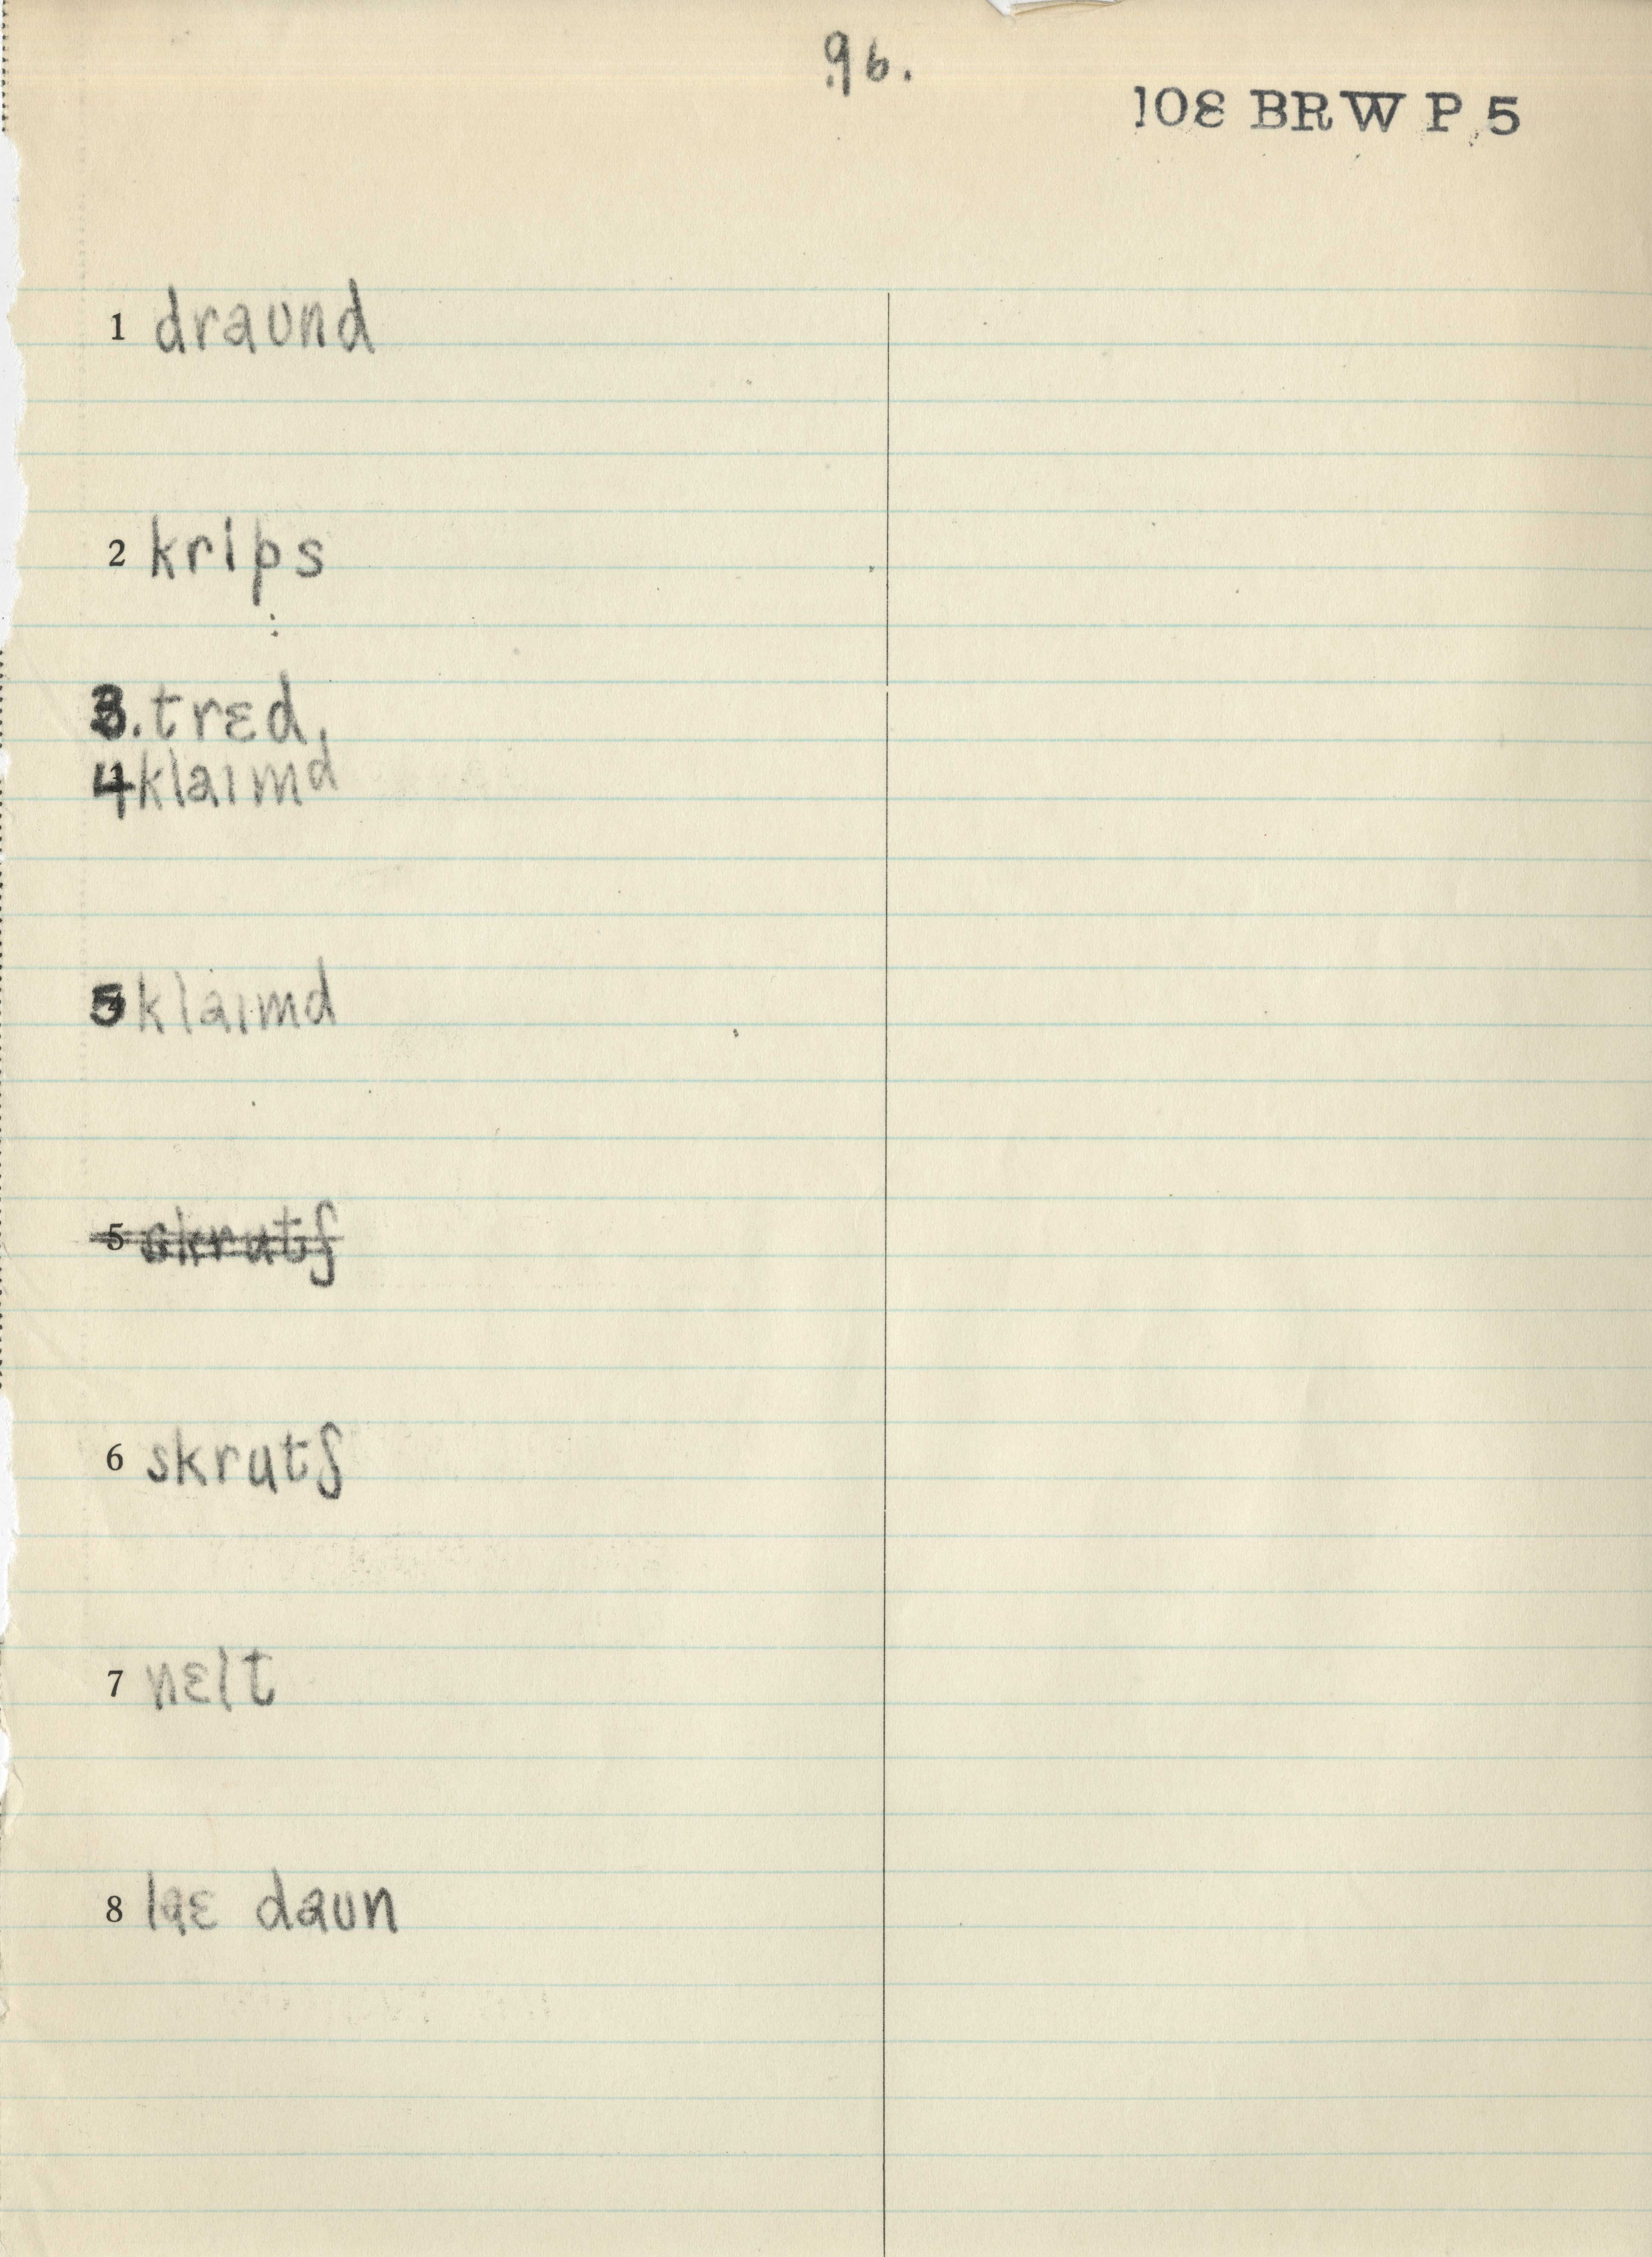 96.
108 BRW P 5
1 draʊnd
2 krips
3. trɛd.
4 klaɪmd
5 klaɪmd
5 skrutʃ
6 skrutʃ
7 nɛlt
8 laɛ daʊn